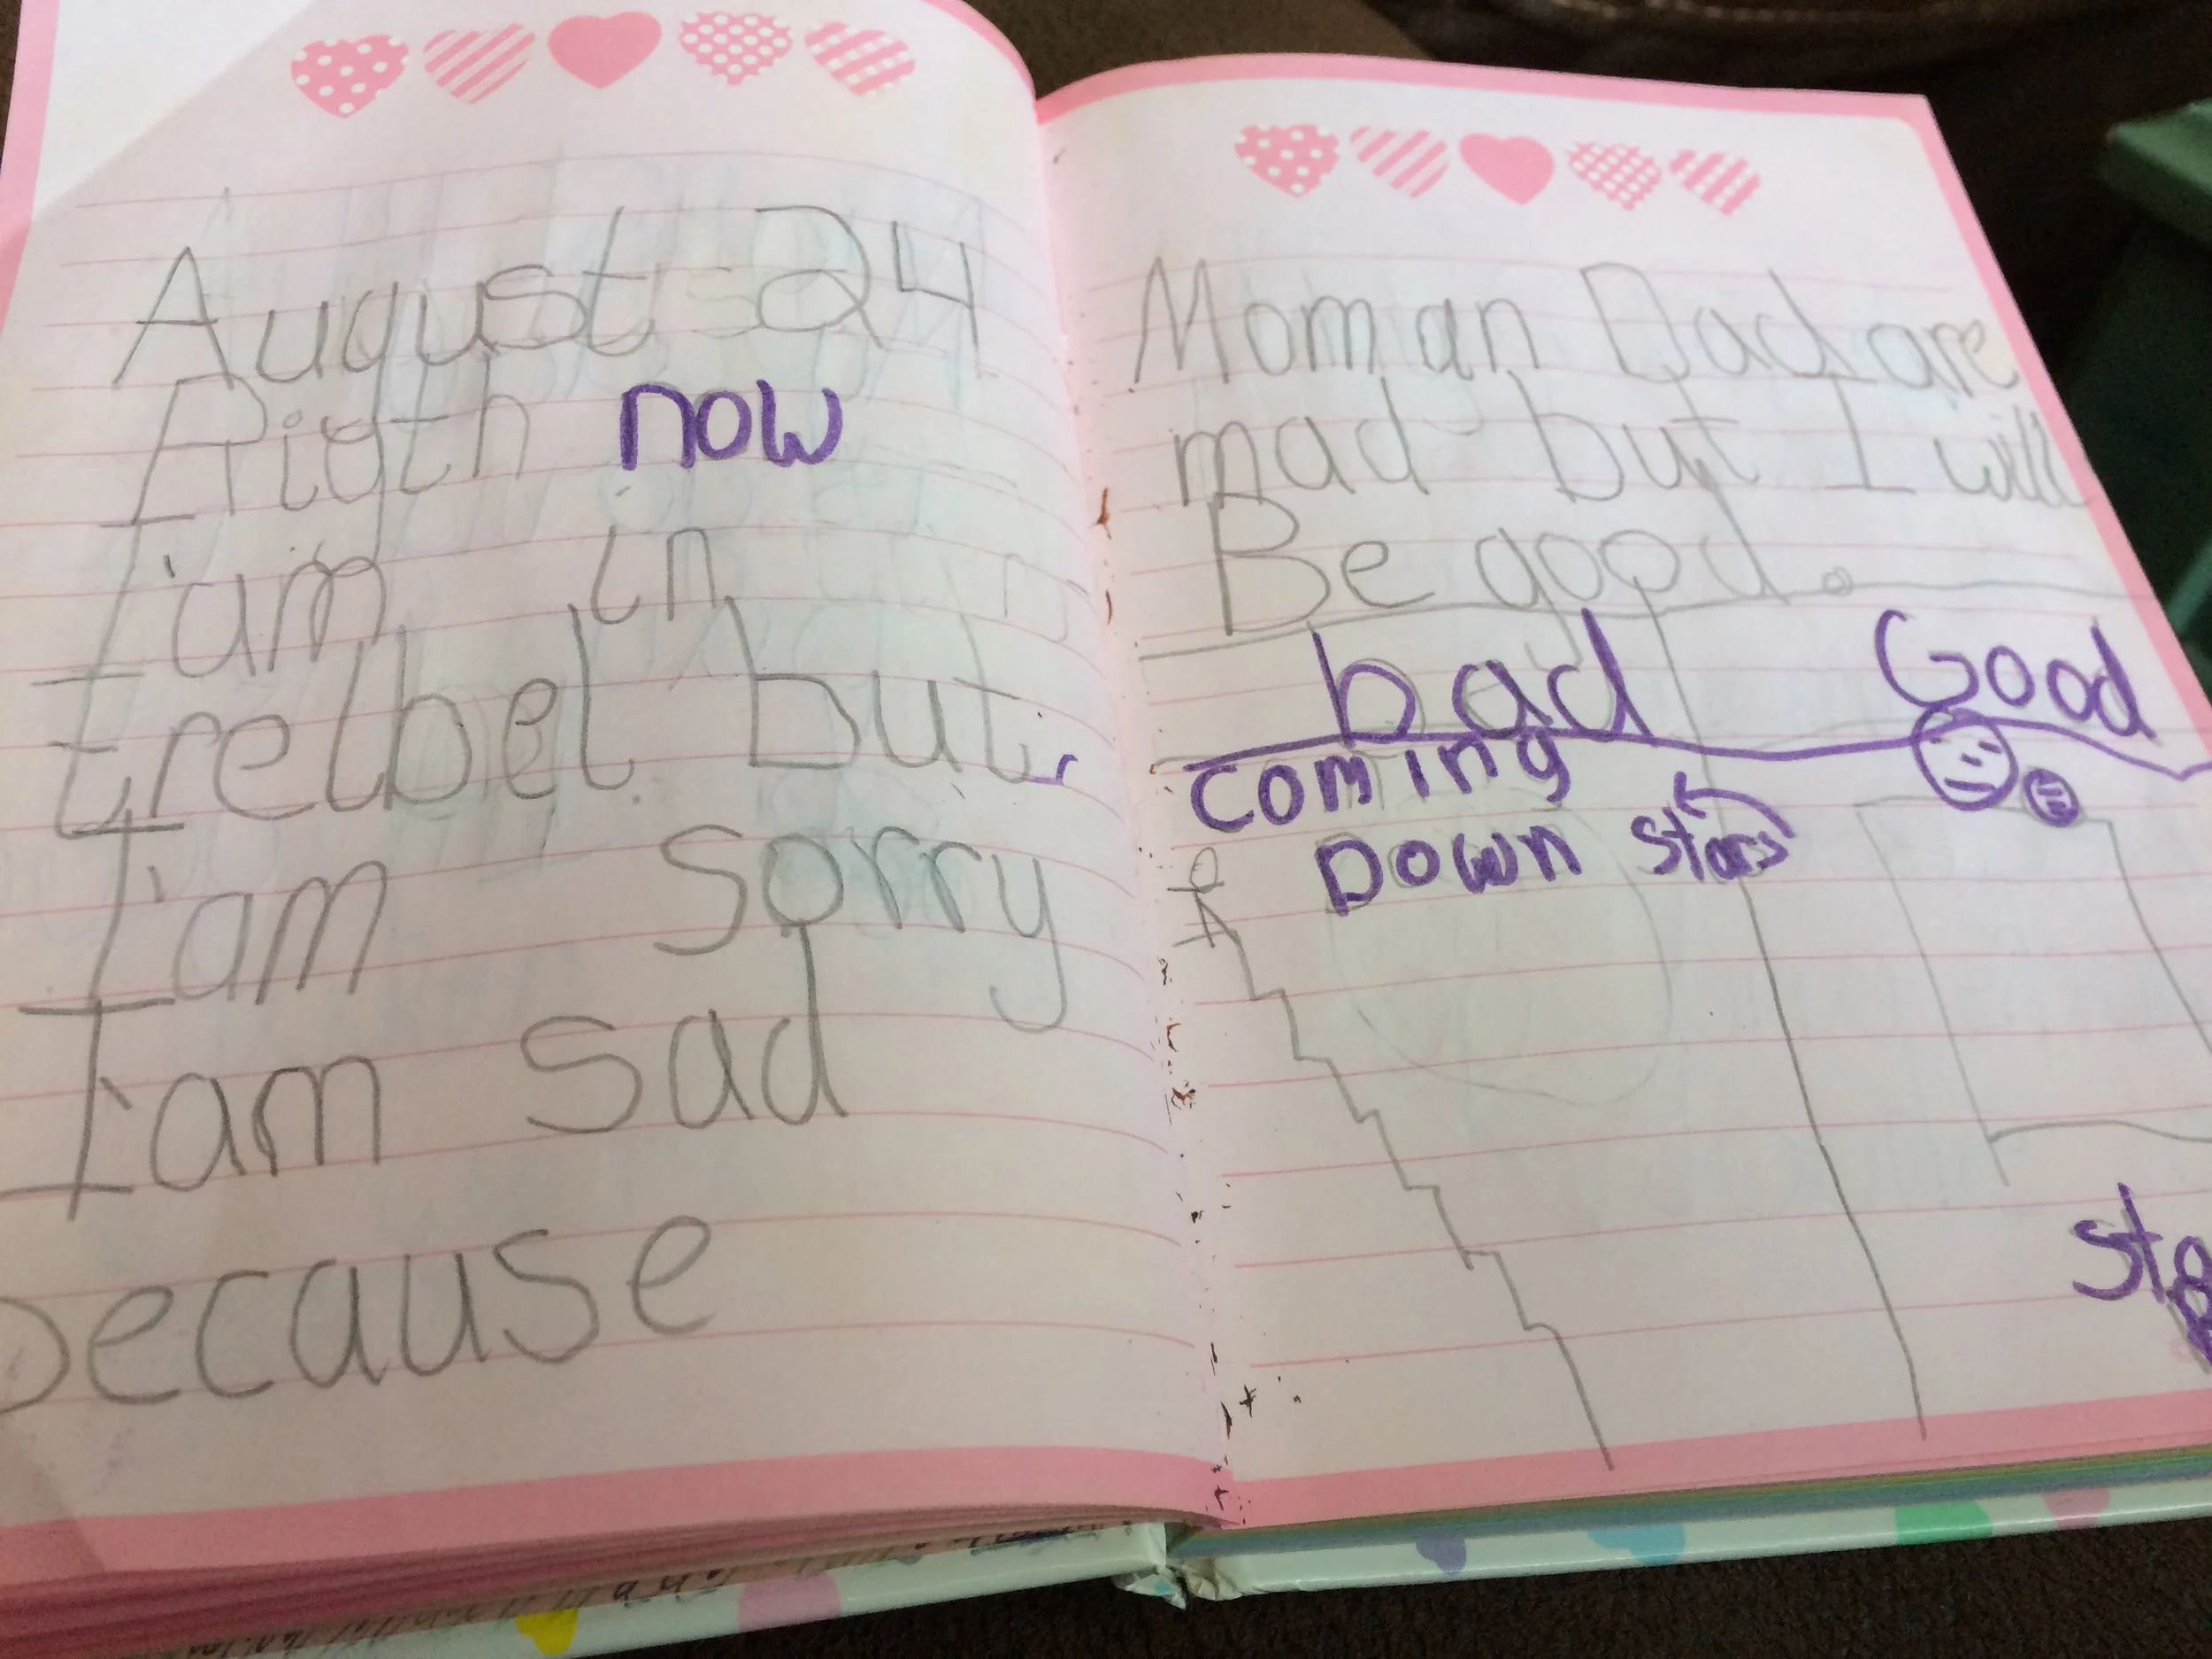 August 24
Rigth now
I'am in
trelbel but
I'am sorry
I'am sad
because
Mom an Dad are
mad but I will
Be good.
bad Good
coming
Down stars